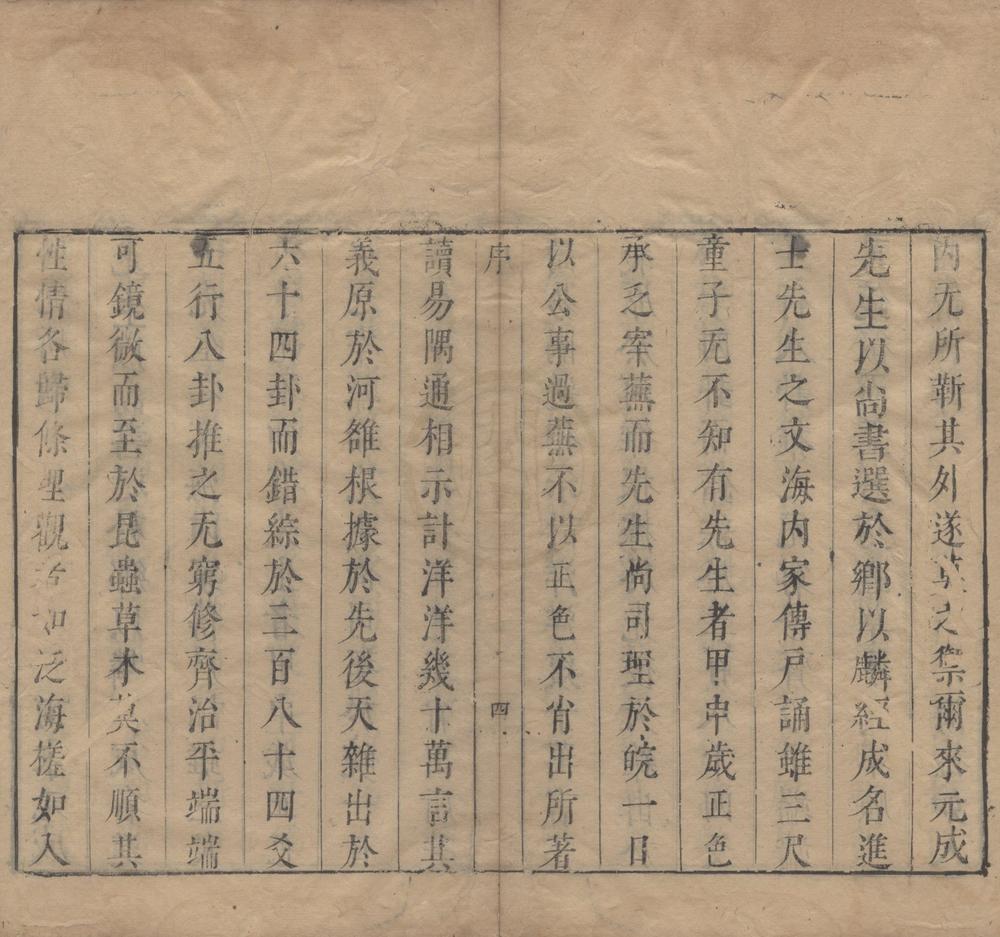 內无所靳其外遂莫之禦爾來元成
先生以尚書選於鄉以麟經成名進
士先生之文海內家傳戶誦雖三尺
童子无不知有先生者甲申歲正色
承乏宰蕪而先生尚司理於皖一日
以公事過蕪不以正色不肖出所著
序 四
讀易隅通相示計洋洋幾十萬言其
義原於河雒根據於先後天雜出於
六十四卦而錯綜於三百八十四爻
五行八卦推之无窮修齊治平端端
可鏡微而至於昆蟲草木莫不順其
性情各歸條理觀者如泛海槎如入